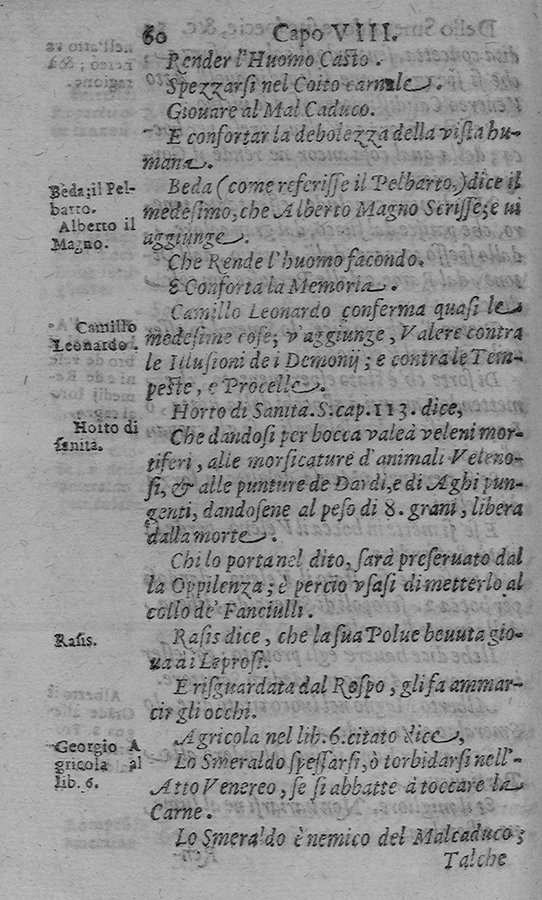 60 Capo VIII.
Render l'Huomo Casto.
Spezzarsi nel Coito carnale.
Giouare al Mal Caduco.
E confortar la debolezza della vista hu-
mana.
Beda; il Pel-
barto.
Alberto il
Magno.
Beda (come referisse il Pelbarto,) dice il
medesimo, che Alberto Magno Scrisse; e ui
aggiunge.
Che Rende l'huomo facondo.
E Conforta la Memoria.
Camillo
Leonardo.
Camillo Leonardo conferma quasi le
medesime cose; v'aggiunge, Valere contra
le Illusioni de i Demonij; e contra le Tem-
peste, e Procelle.
Hoito di
sanità.
Horto di Sanità. S. cap. 113. dice,
Che dandosi per bocca valeà veleni mor-
tiferi, alle morsicature d'animali Veleno-
si, & alle punture de Dardi, e di Aghi pun-
genti, dandosene al peso di 8. grani, libera
dalla morte.
Chi lo porta nel dito, sarà preseruato dal
la Oppilenza; è percio vsasi di metterlo al
collo de' Fanciulli.
Rasis.
Rasis dice, che la sua Polue beuuta gio-
ua ai Leprosi.
E risguardata dal Rospo, gli fa ammar-
cir gli occhi.
Georgio A
gricola al
lib. 6.
Agricola nel lib. 6. citato dice,
Lo Smeraldo spessarsi, ò torbidarsi nell'-
Atto Venereo, se si abbatte à toccare la
Carne.
Lo Smeraldo è nemico del Malcaduco;
Talche